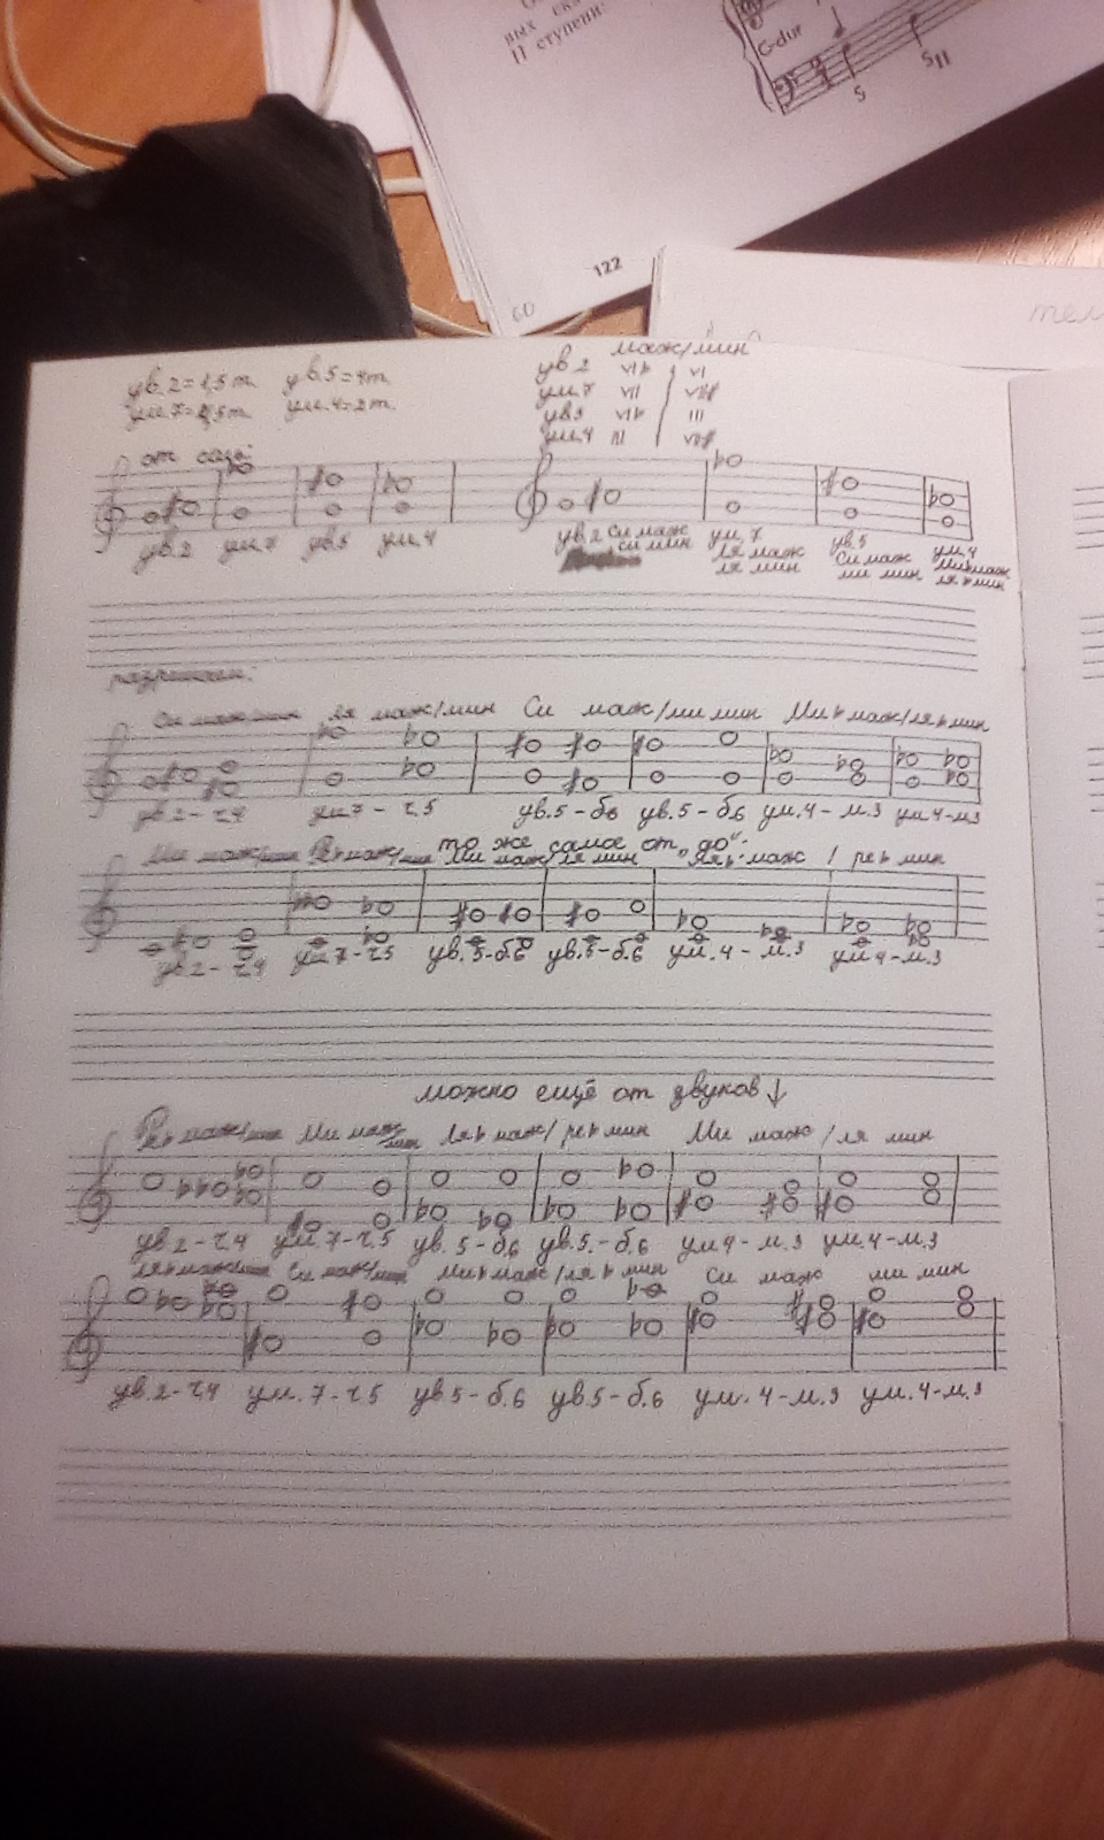 вых
II ступени:
G-dur
S
SII
122
60
маж/мин
ув.2 = 1,5 т. ув.5 = 4т.
ум.7 = 4,5 т. ум.4 = 2 т.
ув 2 VI♭ VI
ум.7 VII VII#
ув5 VI♭ III
ум.4 III VII#
от
ув.2 ум.7 ув.5 ум.4
ув.2 Си маж ум.7 ув.5 ум.4
си мин ля маж Си маж Ми♭маж
ля мин ми мин ля♭мин
разрешаем:
Си маж/мин ля маж/мин Си маж/ми мин Ми♭маж/ля♭мин
ув.2 – ч.4 ум.7 – ч.5 ув.5 – б6 ув.5 – б.6 ум.4 – м.3 ум.4–м.3
то же самое от „до":
Ми маж/мин маж/мин Ми маж/ля мин Ля♭ маж / ре♭ мин
ув.2 – ч.4 ум.7–ч.5 ув.5–б.6 ув.5–б.6 ум.4 – м.3 ум.4–м.3
можно ещё от звуков ↓
маж/мин Ми маж/мин Ля♭ маж/ре♭ мин Ми маж/ля мин
ув2–ч.4 ум.7–ч.5 ув.5–б.6 ув.5.–б.6 ум4–м.3 ум.4–м.3
Ля♭маж/мин Си маж/мин Ми♭маж/ля♭ мин Си маж ми мин
ув.2–ч4 ум.7–ч.5 ув5–б.6 ув5–б.6 ум.4–м.3 ум.4–м.3